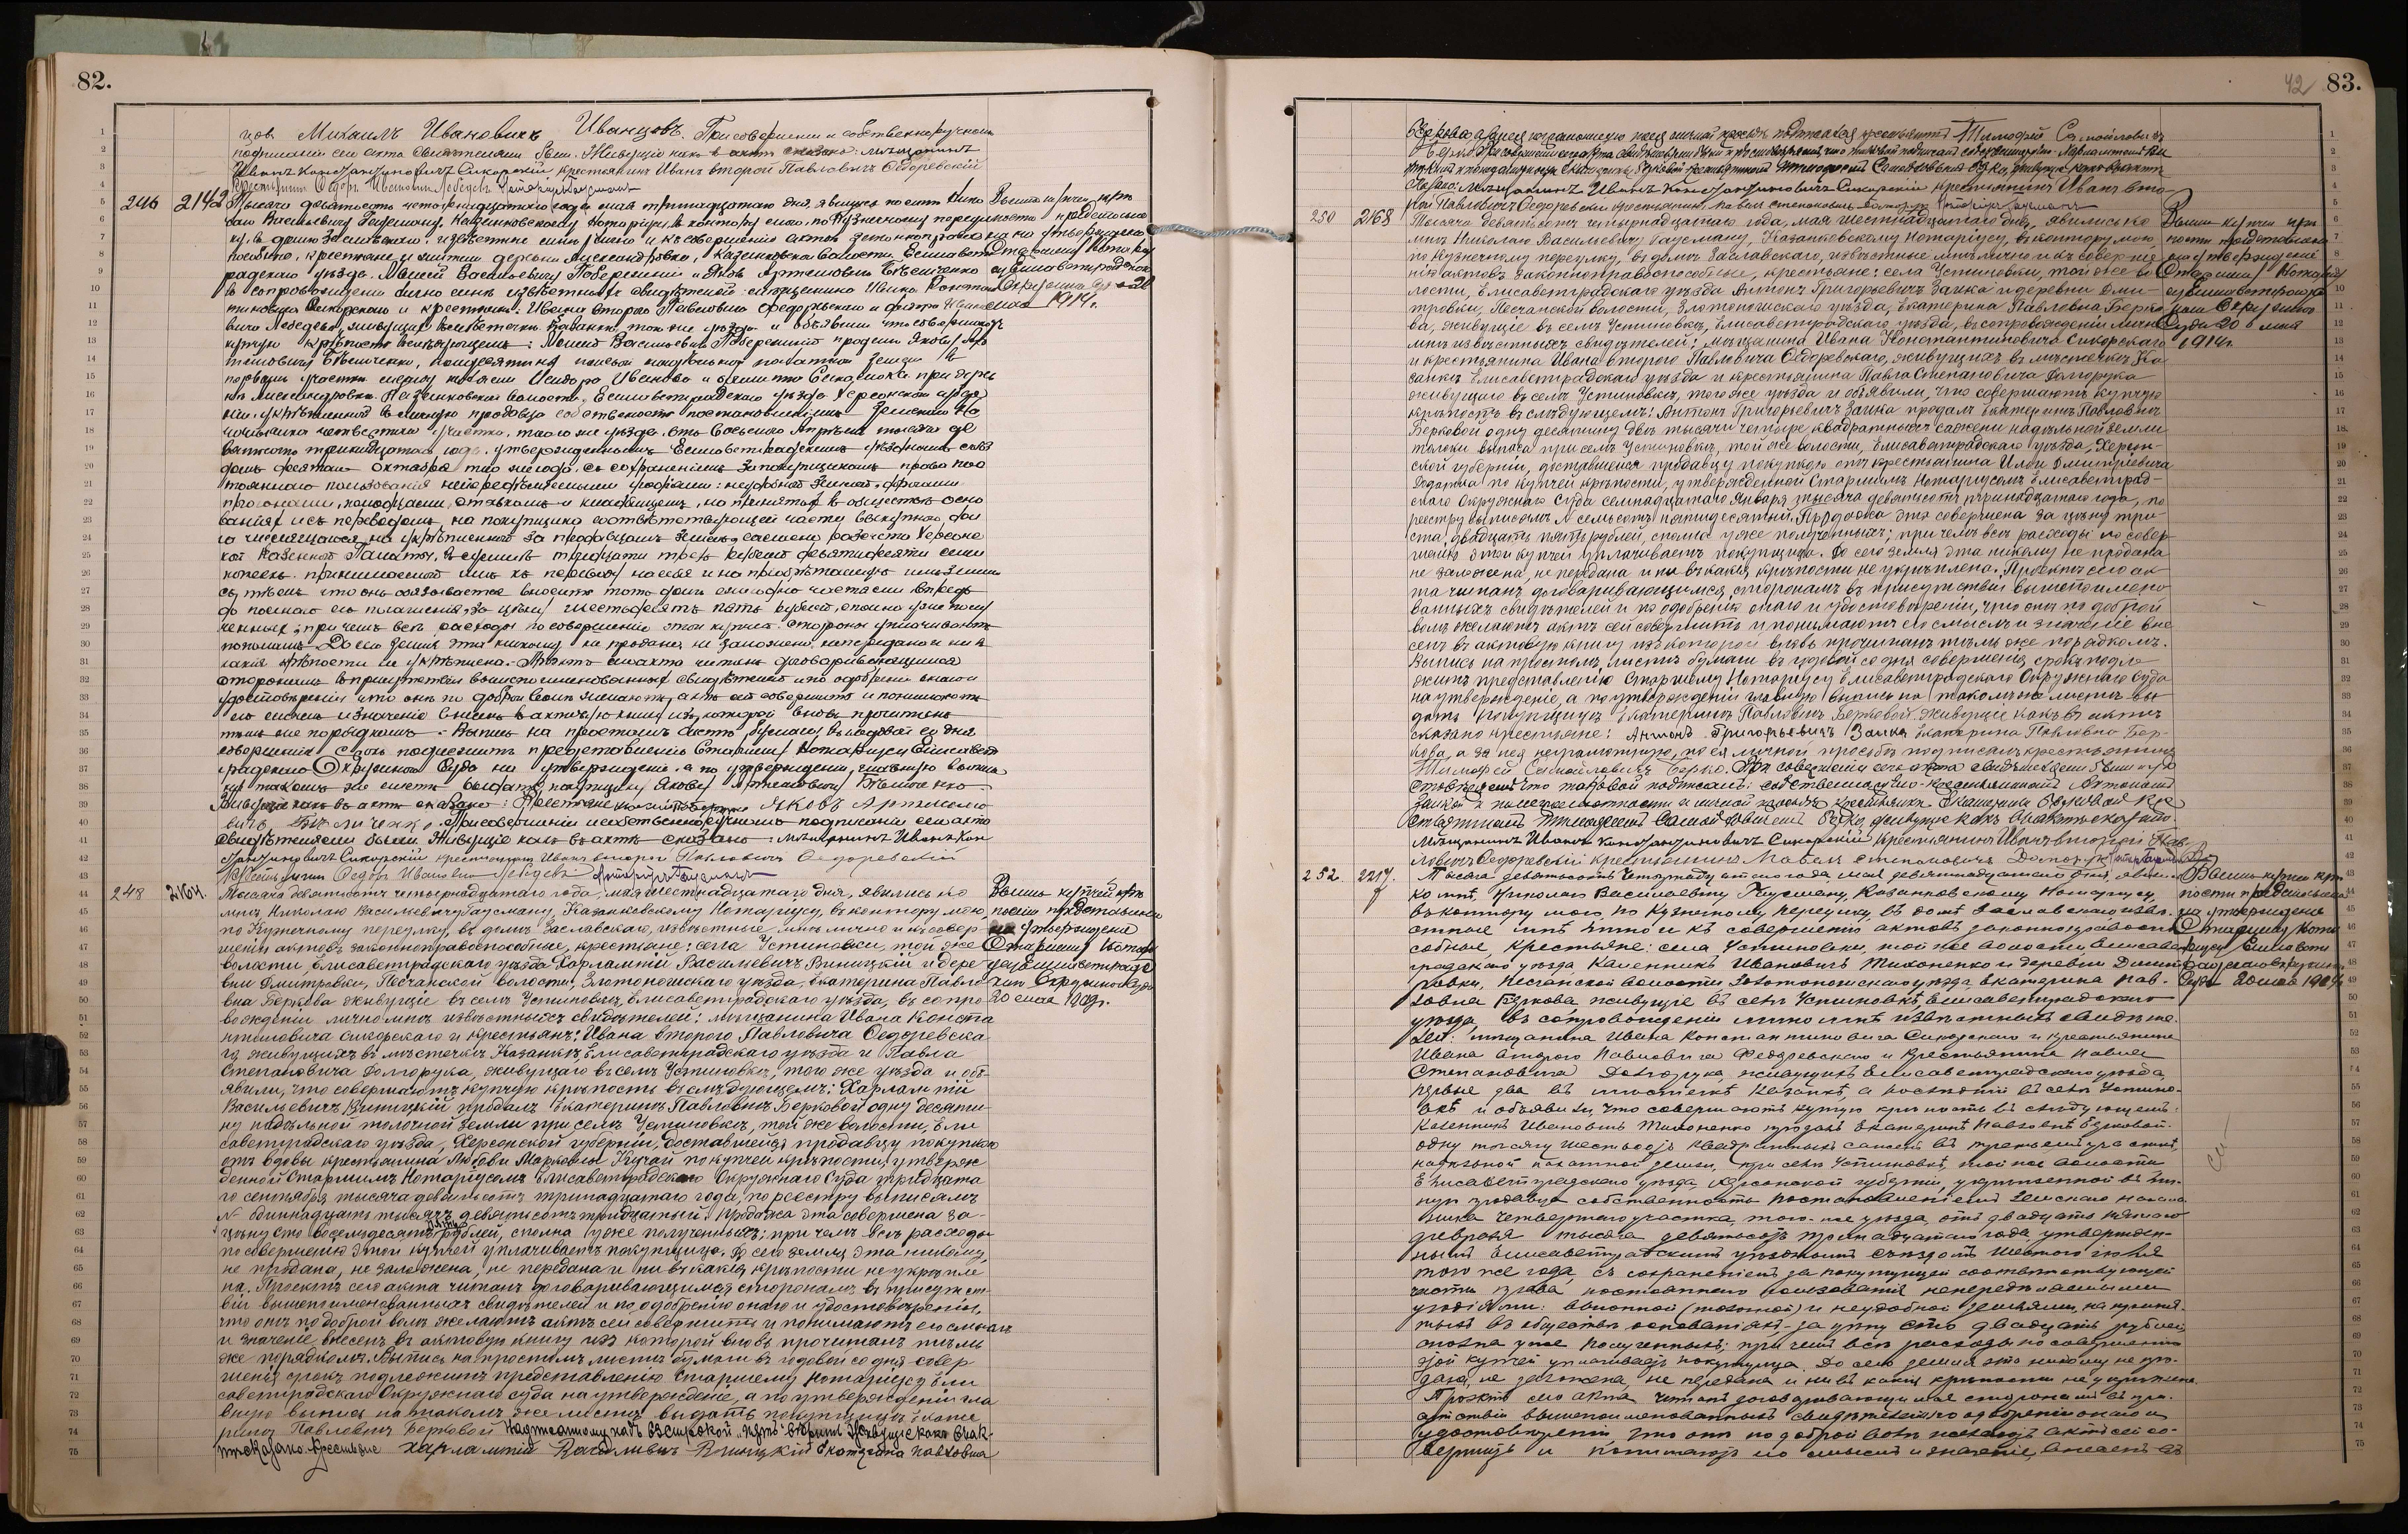 82.
цов Михаилъ Ивановичъ Иванцовъ. При совершеніи и собственноручномъ
подписаніи сего акта свидѣтелями были. Живущіе какъ в актѣ сказано: мѣщанинъ
Иванъ Константиновичъ Сикорскій, крестьянин Иванъ второй Павловичъ Ѳедоревскій
Крестьянин Ѳедоръ Ивановичъ Лебедевъ Нотаріусъ Гаусманъ
246 2142 Тысяча девятьсотъ четырнадцатаго года мая тринадцатаго дня, явились ко мнѣ Нико
лаю Васильевичу Гаусману, Казанковскому Нотаріусу, в контору мою, по Кузнечному переул
ку, в домѣ Заславскаго, извѣстные мнѣ лично и къ совершенію актовъ законноправо
способные, крестьяне и жители деревни Александровки, Казанковской волости, Елисавет
градскаго уѣзда. Моисей Васильевичъ Побережній и Яковъ Артемовичъ Бѣленченко
в сопровожденіи лично мнѣ извѣстныхъ свидѣтелей: мѣщанина Ивана Констан
тиновича Сикорскаго и крестьянъ: Ивана второго Павловича Ѳедоревскаго и Ѳедота Ивано
вича Лебедева, живущихъ в мѣстечкѣ Казанкѣ, того же уѣзда и объявили что совершаютъ
купчую крѣпость в слѣдующемъ: Моисей Васильевичъ Побережній продалъ Якову Ар
темовичу Бѣленченко, полдесятины пахатной земли въ
первомъ участкѣ между полями Исидора Иванова и Никиты при дерев
нѣ Александровкѣ, Казанковской волости, Елисаветградскаго уѣзда Херсонской губер
ніи, укрѣпленной в личную продавца собственность постановленіемъ Земскаго На
чальника четвертаго участка, того же уѣзда, отъ восьмого Апрѣля тысяча де
вятьсотъ тринадцатаго года, утвержденнымъ Елисаветградскимъ уѣзднымъ съѣз
домъ десятаго октября того же года. Съ сохраненіемъ за покупщикомъ права пос
тояннаго пользованія непередѣляемыми угодіями: неудобной землей, дорогами
прогонами, колодцами, ставками и кладбищемъ, на принятыхъ в обществѣ осно
ваніяхъ и съ переводомъ на покупщика соотвѣтствующей части выкупного дол
га числящагося на укрѣпленной за продавцомъ землѣ, согласно разсчета Херсон
кой Казенной Палаты, в суммѣ тридцати трехъ рублей девятидесяти семи
копеекъ, принимаемой имъ къ переводу на себя и на пріобрѣтаемую имъ землю
съ тѣмъ что онъ обязывается вносить тотъ долгъ ежегодно частями впредь
до полнаго его погашенія, за цѣну шестьдесятъ пять рублей, сполна уже полу
ченныхъ; при чемъ всѣ расходы по совершенію этой купчей стороны уплачиваютъ
пополамъ. До сего земля эта никому не продана, не заложена, не передана и ни в
какія крѣпости не укрѣплена. Проектъ сего акта читанъ договаривающимся
сторонамъ в присутствіи вышепоименованныхъ свидѣтелей и по одобреніи онаго и
удостовѣреніи что онѣ по доброй волѣ желаютъ актъ сей совершить и понимаютъ
его смыслъ и значеніе внесенъ в актовую книгу изъ которой вновь прочитанъ
тѣмъ же порядкомъ. Выпись на простомъ листѣ бумаги, в годовой со дня
совершенія срокъ подлежитъ представленію Старшему Нотаріусу Елисавет
градскаго Окружнаго Суда на утвержденіе, а по утвержденіи, главную выпись
на такомъ же листѣ выдать покупщику Якову Артемовичу Бѣленченко
Живущіе какъ в актѣ сказано: Крестьяне Яковъ Артемо
вичъ Бѣленченко. При совершеніи и собственноручномъ подписаніи сего акта
свидѣтелями были. Живущіе какъ въ актѣ сказано: мѣщанинъ Иванъ Кон
стантиновичъ Сикорскій крестьянинъ Иванъ второй Павловичъ Ѳедоревскій
Крестьянин Ѳедоръ Ивановичъ Лебедевъ Нотаріусъ Гаусманъ
Выпись купчей крѣ
пости представлена
на утвержденіе
Старшему Нотаріу
су Елисаветградскаго
Окружнаго Суда 20
мая 1914г.
248 2164. Тысяча девятьсотъ четырнадцатаго года, мая шестнадцатаго дня, явились ко
мнѣ, Николаю Васильевичу Гаусману, Казанковскому Нотаріусу, въ контору мою,
по Кузнечному переулку, въ домѣ Заславскаго, извѣстные мнѣ лично и къ совер
шенію актовъ законноправоспособные, крестьяне: села Устиновки, той же
волости, Елисаветградскаго уѣзда Харлампій Васильевичъ Виницкій и дере
вни Дмитровки, Песчанской волости, Золотоношскаго уѣзда, Екатерина Павло
вна Беркова живущіе въ селѣ Устиновкѣ, Елисаветградскаго уѣзда, въ сопро
вожденіи лично мнѣ извѣстныхъ свидѣтелей: мѣщанина Ивана Конста
нтиновича Сикорскаго и крестьянъ: Ивана второго Павловича Ѳедоревска
го живущихъ въ мѣстечкѣ Казанкѣ, Елисаветградскаго уѣзда и Павла
Степановича Долгорука, живущаго въ селѣ Устиновкѣ, того же уѣзда и объ
явили, что совершаютъ купчую крѣпость въ слѣдующемъ: Харлампій
Васильевичъ Виницкій продалъ Екатеринѣ Павловнѣ Берковой одну десяти
ну надѣльной толочной земли при селѣ Устиновкѣ, той же волости, Ели
саветградскаго уѣзда, Херсонской губерніи, доставшейся продавцу покупкою
отъ вдовы крестьянина Любови Марковны Кучай по купчей крѣпости, утверж
денной Старшимъ Нотаріусомъ Елисаветградскаго Окружнаго Суда тридцата
го сентября тысяча девятьсотъ тринадцатаго года, по реестру выписямъ
№ одиннадцать тысячъ девятьсотъ тридцатый. Продажа эта совершена за
цѣну сто восемьдесятъ пять рублей, сполна уже полученныхъ; при чемъ всѣ расходы
по совершенію этой купчей уплачиваетъ покупщица. До сего земля эта никому
не продана, не заложена, не передана и ни въ какія крѣпости не укрѣпле
на. Проектъ сего акта читанъ договаривающимся сторонамъ въ присутст
віи вышепоименованныхъ свидѣтелей и по одобренію онаго и удостовѣреніи,
что онѣ по доброй волѣ желаютъ актъ сей совершить и понимаютъ его смыслъ
и значеніе внесенъ въ актовую книгу изъ которой вновь прочитанъ тѣмъ
же порядкомъ. Выпись на простомъ листѣ бумаги въ годовой со дня совер
шенія срокъ подлежитъ представленію Старшему Нотаріусу Ели
саветградскаго Окружнаго суда на утвержденіе, а по утвержденіи гла
вную выпись на такомъ же листѣ выдать покупщицѣ Екате
ринѣ Павловнѣ Берковой. Надписанному надъ строкой "пять" вѣрить. Живущіе какъ въ ак
тѣ сказано. Крестьяне Харлампій Васильевичъ Виницкій Екатерина Павловна
Выпись купчей крѣ
пости представлена
на утвержденіе
Старшему Нотарі
усу Елисаветград
скаго Окружного Суда
20 мая 1914г.
42 83.
Беркова, а за нея неграмотную по ея личной просьбѣ подписался крестьянинъ Тимофей Самойловичъ
Берко. При совершеніи сего акта свидѣтелями были
Самойловичъ Берко, живущіе какъ въ актѣ
сказано: Мѣщанинъ Иванъ Константиновичъ Сикорскій крестьянинъ Иванъ вто
рой Павловичъ Ѳедоревскій крестьянинъ Павелъ Степановичъ Долгорук Нотаріусъ Гаусманъ
250 2168 Тысяча девятьсотъ четырнадцатаго года, мая шестнадцатаго дня, явились ко
мнѣ Николаю Васильевичу Гаусману, Казанковскому Нотаріусу, въ контору мою,
по Кузнечному переулку, въ домѣ Заславскаго, извѣстные мнѣ лично и къ соверше
нію актовъ законноправоспособные, крестьяне: села Устиновки, той же во
лости, Елисаветградскаго уѣзда Антонъ Григорьевичъ Заика и деревни Дми
тровки, Песчанской волости, Золотоношскаго уѣзда, Екатерина Павловна Берко
ва, живущіе въ селѣ Устиновкѣ, Елисаветградскаго уѣзда, въ сопровожденіи лично
мнѣ извѣстныхъ свидѣтелей: мѣщанина Ивана Константиновича Сикорскаго
и крестьянина Ивана второго Павловича Ѳедоревскаго, живущихъ въ мѣстечкѣ Ка
занкѣ Елисаветградскаго уѣзда и крестьянина Павла Степановича Долгорука
живущаго въ селѣ Устиновкѣ, того же уѣзда и объявили, что совершаютъ купчую
крѣпость въ слѣдующемъ: Антонъ Григорьевичъ Заика продалъ Екатеринѣ Павловнѣ
Берковой одну десятину двѣ тысячи четыре квадратныхъ сажени надѣльной земли
толоки выпаса при селѣ Устиновкѣ, той же волости, Елисаветградскаго уѣзда, Херсон-
ской губерніи, доставшейся продавцу покупкою отъ крестьянина Ильи Дмитріевича
по купчей крѣпости, утвержденной Старшимъ Нотаріусомъ Елисаветград-
скаго Окружнаго Суда семнадцатаго Января тысяча девятьсотъ тринадцатаго года, по
реестру выписямъ № семьсотъ пятидесятый. Продажа эта совершена за цѣну три-
ста двадцать пять рублей, сполна уже полученныхъ; при чемъ всѣ расходы по совер-
шенію этой купчей уплачиваетъ покупщица. До сего земля эта никому не продана
не заложена, не передана и ни въ какія крѣпости не укрѣплена. Проектъ сего ак-
та читанъ договаривающимся сторонамъ въ присутствіи вышепоимено-
ванныхъ свидѣтелей и по одобреніи онаго и удостовѣреніи, что онѣ по доброй
волѣ желаютъ актъ сей совершить и понимаютъ его смыслъ и значеніе вне
сенъ въ актовую книгу изъ которой вновь прочитанъ тѣмъ же порядкомъ.
Выпись на простомъ листѣ бумаги въ годовой со дня совершенія срокъ подле
житъ представленію Старшему Нотаріусу Елисаветградскаго Окружнаго Суда
на утвержденіе, а по утвержденіи главную выпись на такомъ же листѣ вы
дать покупщицѣ Екатеринѣ Павловнѣ Берковой. Живущіе какъ въ актѣ
сказано крестьяне: Антонъ Григорьевичъ Заика Екатерина Павловна Бер-
кова, а за нея неграмотную, по ея личной просьбѣ подписалъ крестьянинъ
Тимофей Самойловичъ Берко. При совершеніи сего акта свидѣтелями были и удо
стовѣряемъ что таковой подписали: собственноручно-крестьянинъ Антонъ
Заика и по неграмотности и личной просьбѣ крестьянки Екатерины Берковой кре
стьянинъ Тимофей Самойловичъ Берко, живущіе какъ въ актѣ сказано.
Мѣщанинъ Иванъ Константиновичъ Сикорскій Крестьянинъ Иванъ второй Пав
ловичъ Ѳедоревскій крестьянинъ Павелъ Степановичъ Долгорук Нотаріусъ Гаусманъ
Выпись купчей крѣ
пости представлена
на утвержденіе
Старшему Нотарі
усу Елисаветград
скаго Окружного
Суда 20 мая
1914г.
252 2217. Тысяча девятьсотъ четырнадцатаго года, мая девятнадцатаго дня, явились
ко мнѣ, Николаю Васильевичу Гаусману, Казанковскому Нотаріусу,
въ контору мою, по Кузнечному переулку, въ домѣ Заславскаго извѣ-
стные мнѣ лично и къ совершенію актовъ законноправоспо
собные, крестьяне: села Устиновки, той же волости Елисавет
градскаго уѣзда Каленникъ Ивановичъ Тихоненко и деревни Дмит
ровки, Песчанской волости Золотоношскаго уѣзда Екатерина Пав-
ловна Беркова живущіе въ селѣ Устиновкѣ, Елисаветградскаго
уѣзда, въ сопровожденіи лично мнѣ извѣстныхъ свидѣте-
лей: мѣщанина Ивана Константиновича Сикорскаго и крестьянина
Ивана второго Павловича Ѳедоревскаго и крестьянина Павла
Степановича Долгорука, живущихъ Елисаветградскаго уѣзда,
первые два въ мѣстечкѣ Казанкѣ, а послѣдній въ селѣ Устино-
вкѣ и объявили, что совершаютъ купчую крѣпость въ слѣдующемъ:
Каленникъ Ивановичъ Тихоненко продалъ Екатеринѣ Павловнѣ Берковой.
одну тысячу шестьсотъ квадратныхъ саженъ въ третьемъ участкѣ,
надѣльной пахатной земли, при селѣ Устиновкѣ, той же волости
Елисаветградскаго уѣзда, Херсонской губерніи, укрѣпленной въ лич-
ную продавца собственность постановленіемъ Земскаго началь
ника четвертаго участка, того-же уѣзда, отъ двадцать пятаго
февраля тысяча девятьсотъ тринадцатаго года, утвержден-
нымъ Елисаветградскимъ уѣзднымъ съѣздомъ шестого іюля
того же года, съ сохраненіемъ за покупщицей соотвѣтствующей
части права постояннаго пользованія непередѣляемыми
угодіями: выгонной (толочной) и неудобной землями, на приня-
тыхъ въ обществѣ основаніяхъ - за цѣну сто двадцать рублей
сполна уже полученныхъ; при чемъ всѣ расходы по совершенію
этой купчей уплачиваетъ покупщица. До сего земля эта никому не про-
дана, не заложена, не передана и ни въ какія крѣпости не укрѣплена.
Проектъ сего акта читанъ договаривающимся сторонамъ въ при-
сутствіи вышепоименованныхъ свидѣтелей и по одобреніи онаго и
удостовѣреніи, что онѣ по доброй волѣ желаютъ актъ сей со-
вершить и понимаютъ его смыслъ и значеніе, внесенъ въ
Выпись купчей крѣ
пости представлена
на утвержденіе
Старшему Нота
ріусу Елисавет
градскаго Окружнаго
Суда 20 мая 1914г.